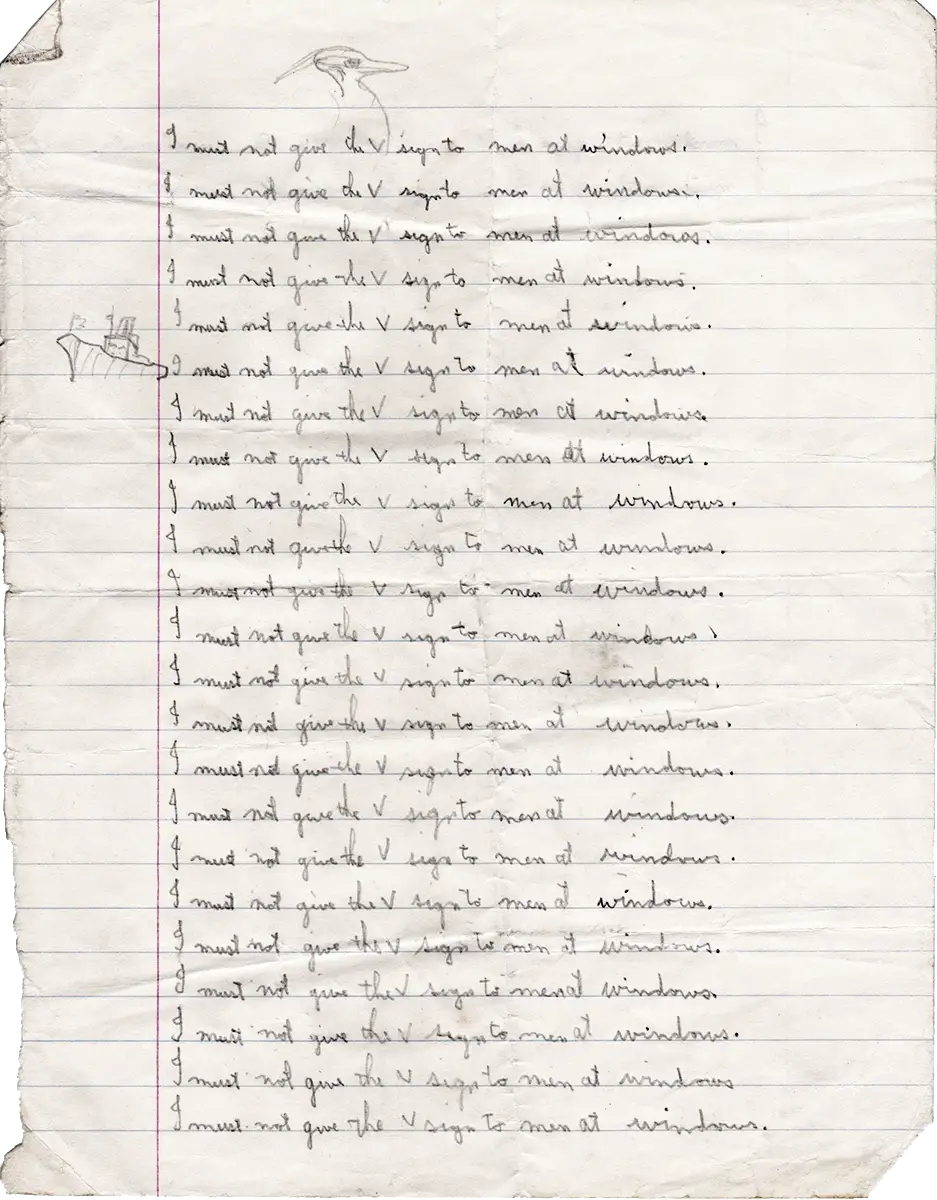 I must not give the V sign to men at windows.
I must not give the V sign to men at windows.
I must not give the V sign to men at windows.
I must not give the V sign to men at windows.
I must not give the V sign to men at windows.
I must not give the V sign to men at windows.
I must not give the V sign to men at windows.
I must not give the V sign to men at windows.
I must not give the V sign to men at windows.
I must not give the V sign to men at windows.
I must not give the V sign to men at windows.
I must not give the V sign to men at windows.
I must not give the V sign to men at windows.
I must not give the V sign to men at windows.
I must not give the V sign to men at windows.
I must not give the V sign to men at windows.
I must not give the V sign to men at windows.
I must not give the V sign to men at windows.
I must not give the V sign to men at windows.
I must not give the V sign to men at windows.
I must not give the V sign to men at windows.
I must not give the V sign to men at windows
I must not give the V sign to men at windows.